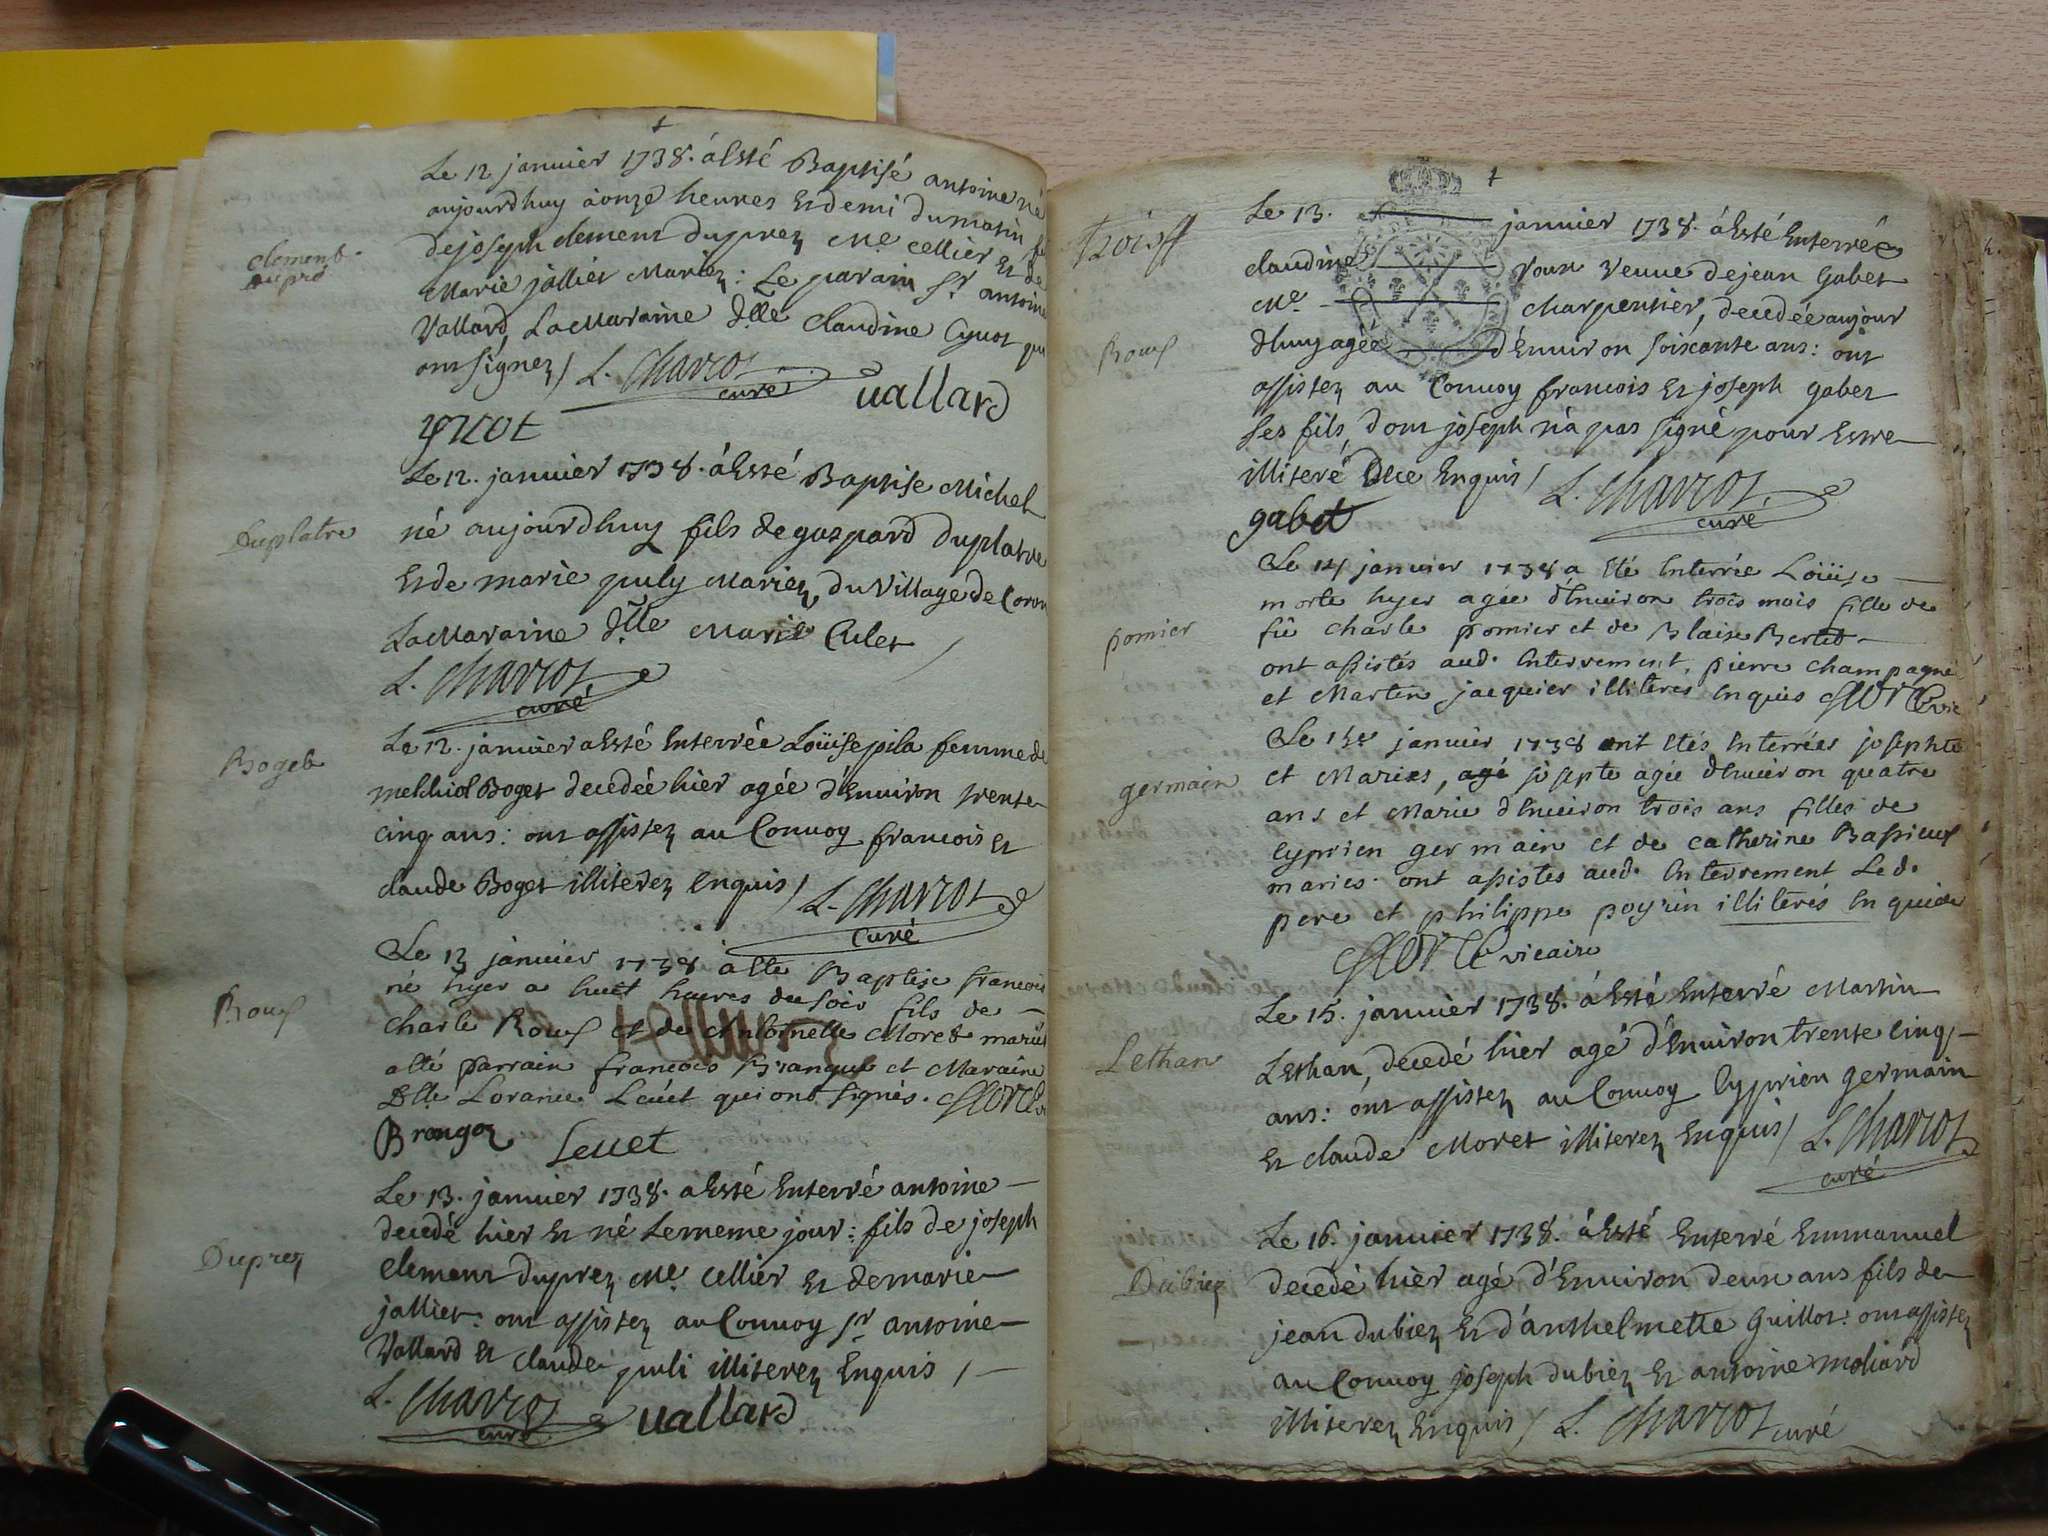 clement
dupré
Le 12 janvier 1738. à Esté Baptisé antoine né
aujourdhuy à onze heures Et demi du matin
de joseph clement duprez Me cellier Et de
Marie jallier Mariez: Le parain Sr antoine
Vallard, La Maraine dlle claudine Cynot qui
ont signez / L. Charcot
curé
vallard
Duplatre
Le 12. janvier 1738. à Esté Baptise Michel
né aujourdhuy fils de gaspard duplatre
Et de marie puly Mariez, du Village de
La Maraine dlle Marie Culet /
L. Charcot
curé
Boget
Le 12. janvier a Esté Enterrée Loüise pila femme de
melchiol Boget decedée hier agée d'Environ trente
cinq ans: ont assistez au Convoy francois Et
claude Boget illiterez Enquis / L. Charcot
curé
Roux
Le 13 janvier 1738 a ete Baptise francois
né hyer a huit heures du soir fils de
charle Roux et de Antoinette Moret mariés
a été parrain francois Branguet et Maraine
Dlle Lorance Leuet qui ont signés.
Leuet
Duprez
Le 13. janvier 1738. a Esté Enterré antoine
decedé hier Et né Le meme jour: fils de joseph
clement duprez Me cellier Et de marie
jallier: ont assistez au Convoy Sr antoine
Vallard Et claude puli illiterez Enquis /
L. Charcot
curé
vallard
Roux
Le 13. janvier 1738. à Esté Enterrée
claudine roux veuve de jean Gabet
Me charpentier, decedée aujour
dhuy agée d'Environ soixante ans: ont
assistez au Convoy francois Et joseph gabet
ses fils, dont joseph n'à pas signé pour Estre
illiteré de ce Enquis / L. Charcot
curé
gabet
pomier
Le 14 janvier 1738 a Eté Enterrée Loüise
morte hyer agée d'Environ trois mois fille de
fû charle pomier et de Blaise Bertet
ont assistés aud. Enterrement pierre champagne
et Martin jacquier illiterés Enquis
germain
Le 15e janvier 1738 ont Etés Enterrées josephte
et Maries, agé josepte agée d'Environ quatre
ans et Marie d'Environ trois ans filles de
Cyprien germain et de catherine Bassieux
mariés. ont assistés aud. Enterrement Led.
pere et philippe poyrin illiterés Enquis
vicaire
Lethan
Le 15. janvier 1738. à Esté Enterré Martin
Lethan, decedé hier agé d'Environ trente cinq
ans: ont assistez au Convoy Cyprien germain
Et claude Moret illiterez Enquis / L. Charcot
curé
Dubiez
Le 16. janvier 1738. à Esté Enterré Emmanuel
decedé hier agé d'Environ deux ans fils de
jean dubiez Et d'anthelmette Guillot: ont assistez
au Convoy joseph dubiez Et antoine moliard
illiterez Enquis / L. Charcot curé